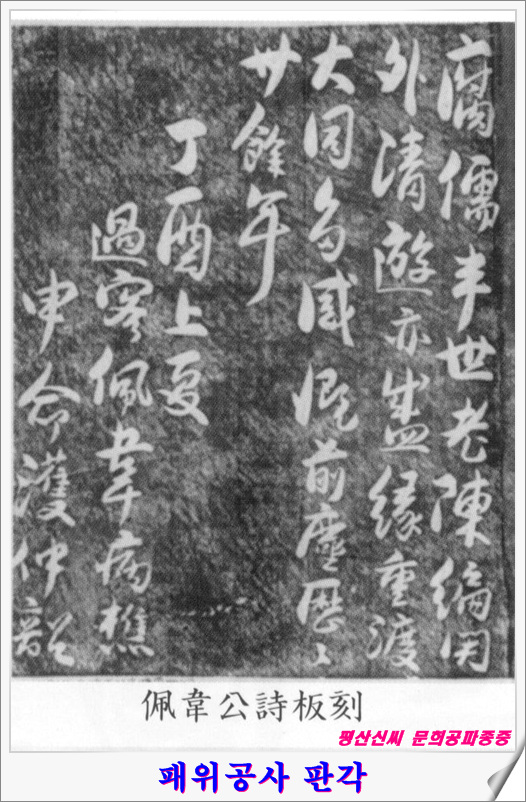 腐儒半世老陳編関
外清遊亦盛緣重渡
大同多感慨前塵歷〻
廿餘年
丁酉上夏
過客佩韋病樵
申命濩仲韶
佩韋公詩板刻
평산신씨 문희공파종중
패위공사 판각